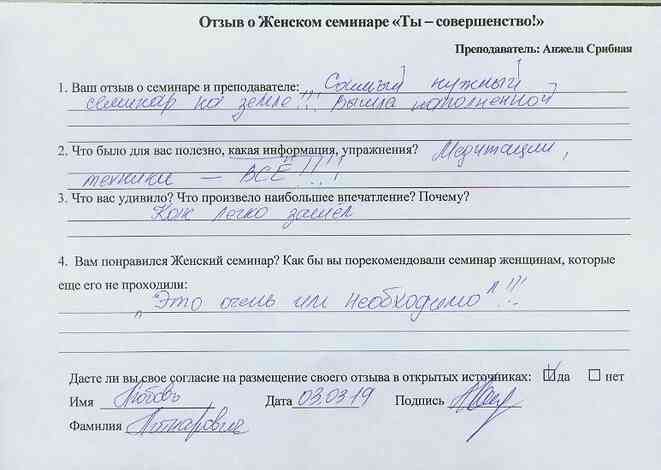 Отзыв о Женском семинаре «Ты – совершенство!»
Преподаватель: Анжела Срибная
1. Ваш отзыв о семинаре и преподавателе: Самый нужный
семинар на земле!!! Вышла наполненной
2. Что было для вас полезно, какая информация, упражнения? Медитации,
техники — ВСЁ!!!!
3. Что вас удивило? Что произвело наибольшее впечатление? Почему?
Как легко зашёл
4. Вам понравился Женский семинар? Как бы вы порекомендовали семинар женщинам, которые
еще его не проходили:
"Это очень им необходимо"!!!
Даете ли вы свое согласие на размещение своего отзыва в открытых источниках: да нет
Имя Любовь Дата 03.03.19 Подпись
Фамилия